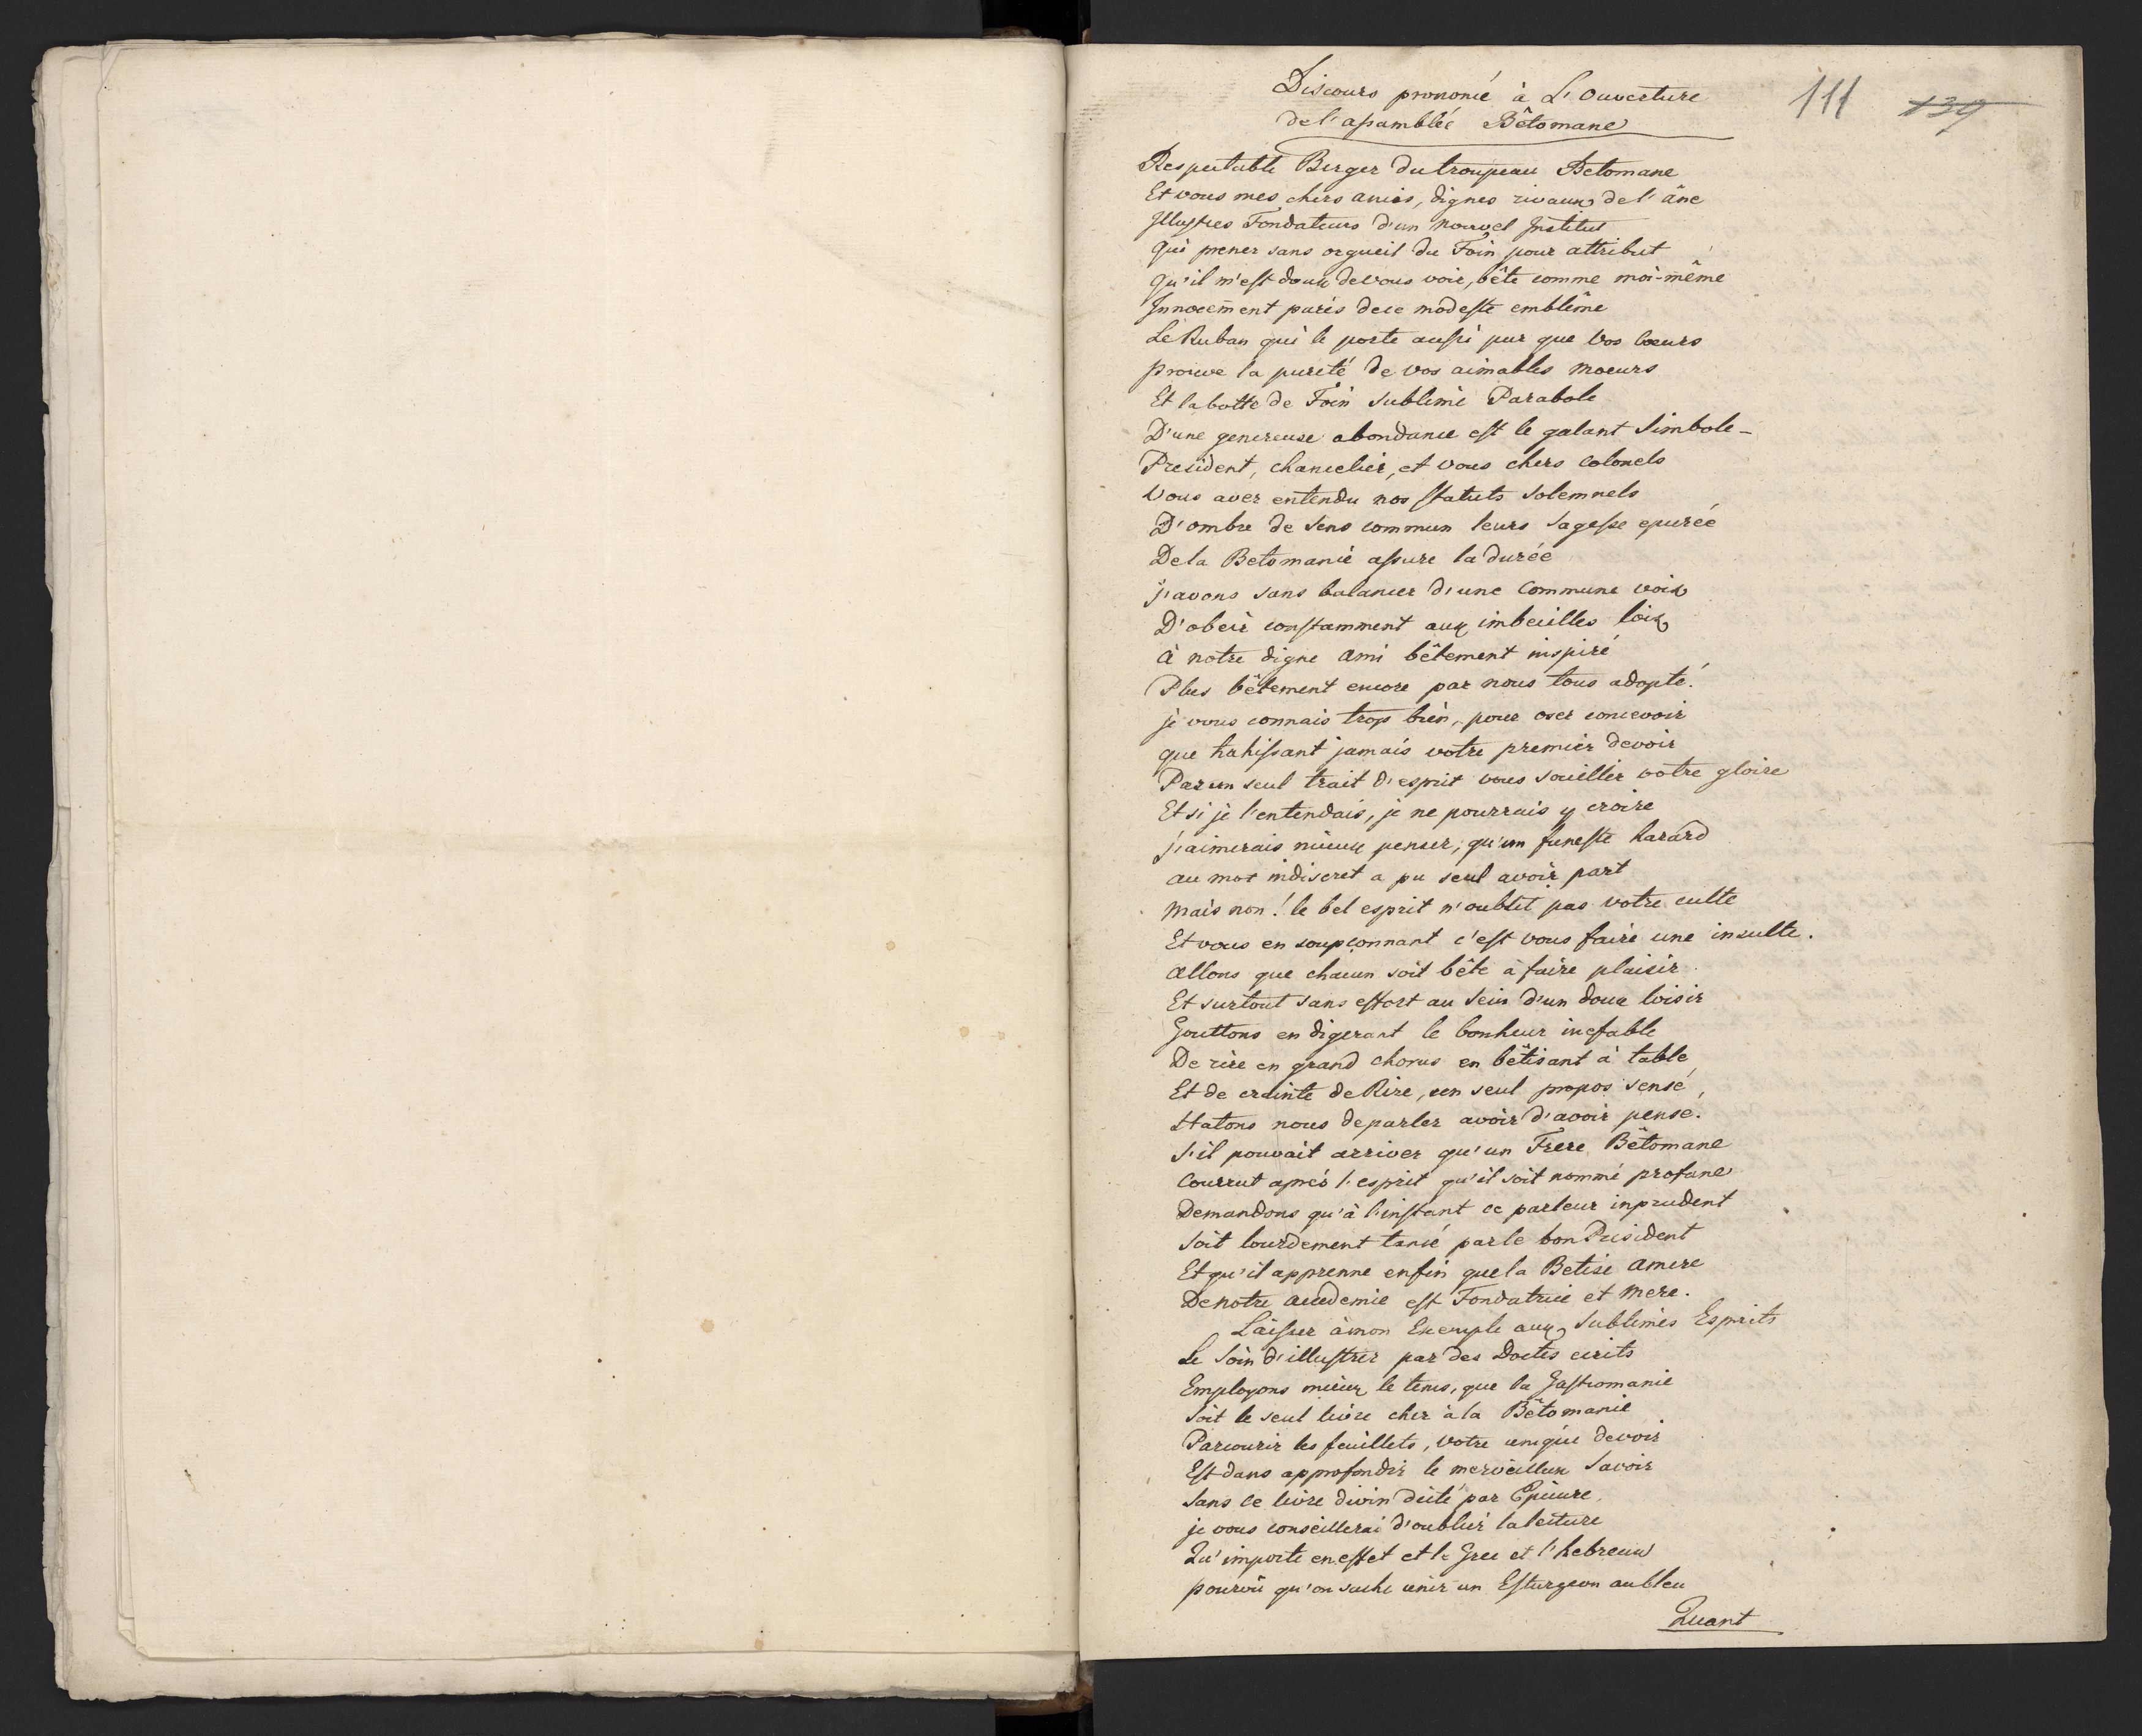 Discours prononcé à L'Ouverture
de l'assamblée Bêtomane
111 139
Respectable Berger du troupeau Betomane
Et vous mes chers amis, dignes rivaux de l'âne
Illustres Fondateurs d'un nouvel Institut
Qui prenez sans orgueil du Foin pour attribut
Qu'il m'est doux de vous voir, bête comme moi-même
Innocem̄ent parés de ce modeste emblême
Le Ruban qui le porte aussi pur que vos Coeurs
prouve la pureté de vos aimables moeurs
Et la botte de Foin sublime Parabole
D'une genereuse abondance est le galant Simbole-
President, chancelier, et vous chers colonels
Vous avez entendu nos statuts solemnels
D'ombre de sens commun leurs sagesse epurée
De la Betomanie assure la durée
j'avons sans balancer d'une Commune voix
D'obeir constamment aux imbecilles loix
à notre digne ami bêtement inspiré
Plus bêtement encore par nous tous adopté.
je vous connais trop bien, pour oser concevoir
que trahissant jamais votre premier devoir
Par un seul trait d'esprit vous souillier votre gloire
Et si je l'entendais, je ne pourrais y croire
j'aimerais mieux penser, qu'un funeste hazard
au mot indiscret a pu seul avoir part
mais non! le bel esprit n'oublit pas votre culte
Et vous en soupçonnant c'est vous faire une insulte.
allons que chacun soit bête à faire plaisir
Et surtout sans effort au sein d'un doux loisir
Gouttons en digerant le bonheur inefable
De rire en grand chorus en bêtisant à table
Et de crainte de Rire, un seul propos sensé,
Hatons nous de parler avoir d'avoir pensé.
S'il pouvait arriver qu'un Frere Bêtomane
Courrut après l'esprit qu'il soit nommé profane
Demandons qu'à l'instant ce parleur inprudent
soit lourdement tancé par le bon President
Et qu'il apprenne enfin que la Betise amere
De notre academie est Fondatrice et mere.
Laissez à mon Exemple aux sublimes Esprits
Le soin d'illustrer par des Doctes ecrits
Employons mieux le tems, que la Gastromanie
soit le seul livre cher à la Bêtomanie
Parcourir les feuillets, votre unique devoir
Est dans approfondir le merveilleux savoir
Sans ce livre divin dicté par Epicure,
je vous conseillerai d'oublier la lecture
Qu'importe en effet et le Grec et l'hebreux
pourvû qu'on sache unir un Esturgeon au bleu
Quant